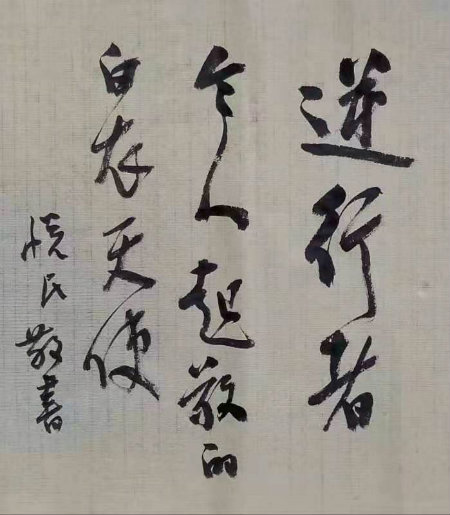 逆行者
令人起敬的
白衣天使
悦民敬書